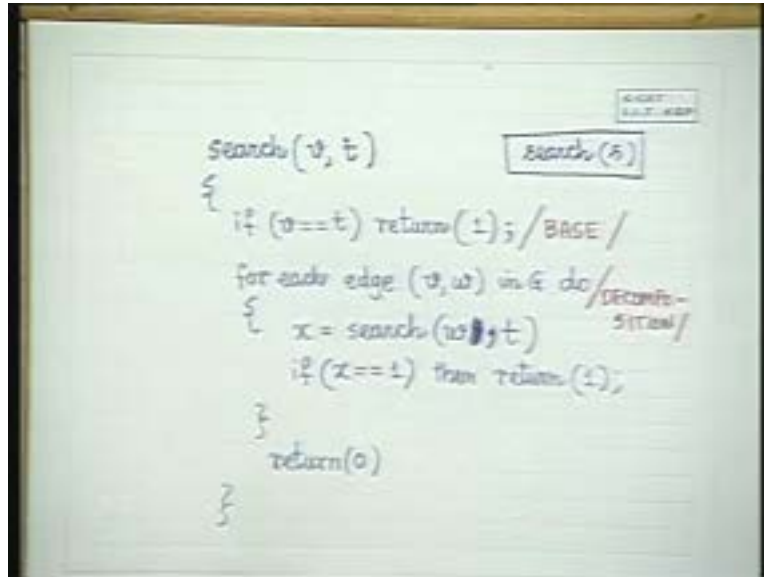 search(v, t)
search(s)
{
if (v==t) return(1); /BASE/
for each edge (v,w) in G do /DECOMPO-
SITION/
{
x = search(w, t)
if (x==1) then return(1);
}
return(0)
}